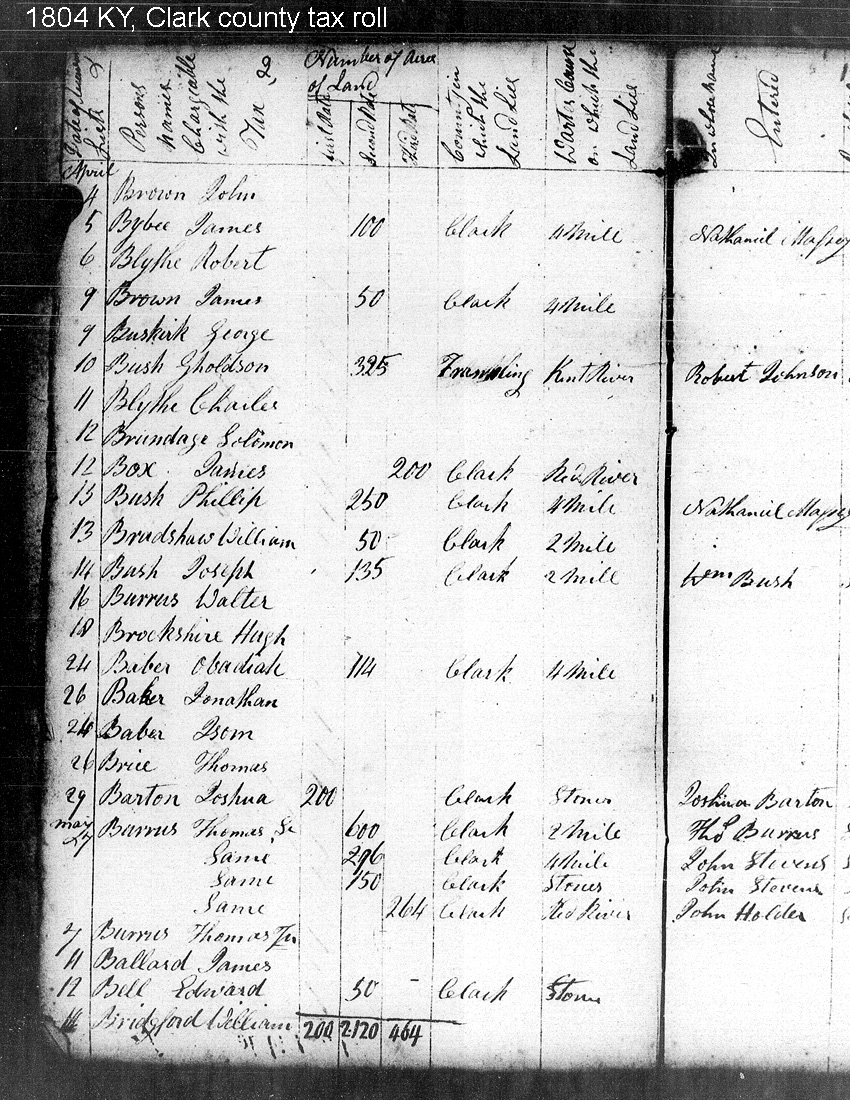 1804 KY, Clark county tax roll
Persons Names Chargeable with the Tax
Number of Acres of Land
Second Rate
County in which the Land Lies
Warter Course on which the Land Lies
In whose Name
Entered
April
4 Brown John
5 Bybee James 100 Clark 4 Mile Nathaniel
6 Blythe Robert
9 Brown James 50 Clark 4 Mile
9 Buskirk George
10 Bush Gholdson 325 Kent River Robert Johnson
11 Blythe Charles
12 Brundage Solomon
12 Box James 200 Clark Red River
13 Bush Phillip 250 Clark 4 Mile Nathaniel
13 Bradshaw William 50 Clark 2 Mile
14 Bush Joseph 135 Clark 2 Mill Wm Bush
16 Burrus Walter
18 Brockshire Hugh
24 Baber Obadiah 114 Clark 4 Mile
26 Baker Jonathan
26 Baber Isom
26 Brice Thomas
29 Barton Joshua 200 Clark Stoner Joshua Barton
may 27 Burrus Thomas Se 600 Clark 2 Mile Tho Burrus
Same 296 Clark 4 Mile John Stevens
Same 150 Clark Stones John Stevens
Same 264 Clark Red River John Holder
7 Burrus Thomas Jn
11 Ballard James
12 Bell Edward 50 Clark Stone
14 Bridgford William 200 2120 464